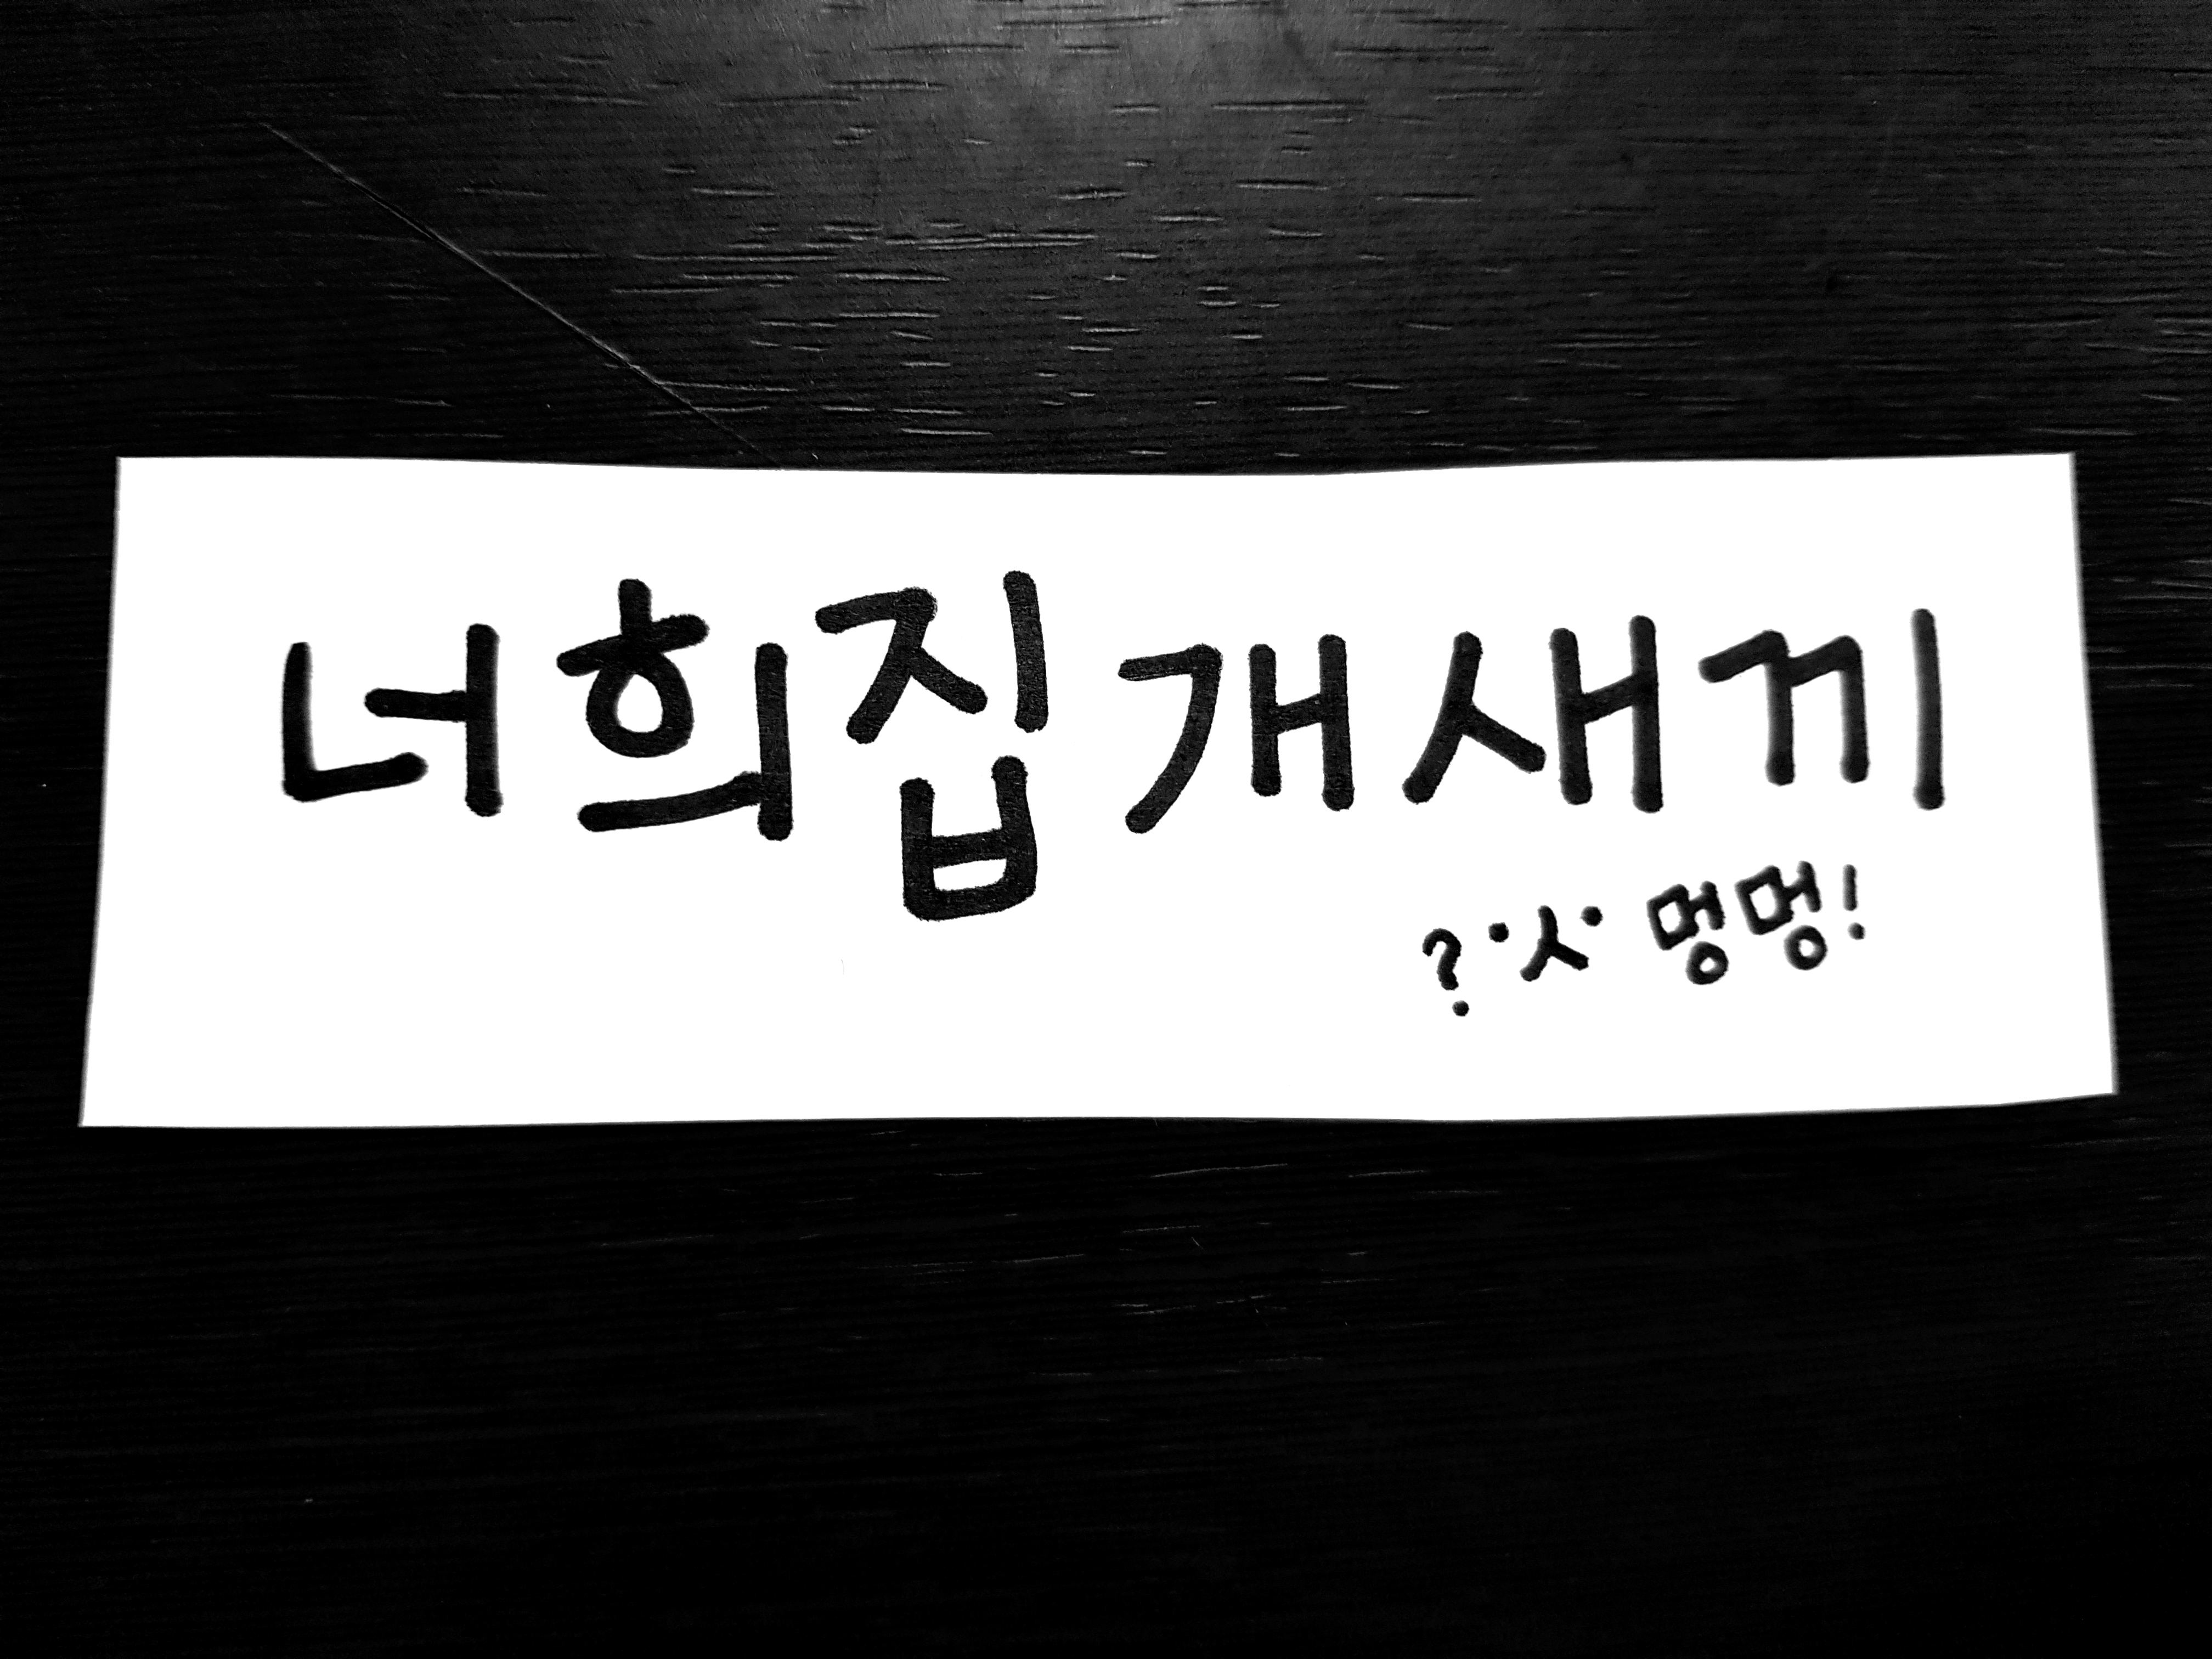 너희집 개새끼
?•ㅅ• 멍멍!